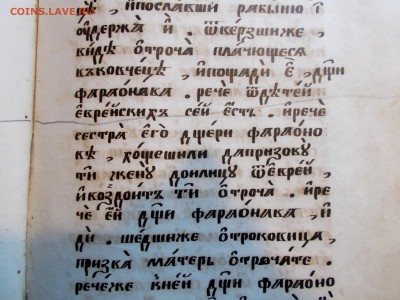 COINS.LAVE.RU
ѧ҆, и҆пославши рабыню і҆
оу҆держа и҆ . ѿверзшиже ,
видѣ ѻ҆троча плачющеся
въковчеѕѣ , и҆пощади є҆ , дщи
фараѡнава . рече ѿдѣтей
є҆врейскихъ сей є҆сть . и҆рече
сестра є҆го дщери фараѡно
вѣ , хощешили дапризову
ти жену доилицу ѿє҆врей ,
и҆воздоитъ ти ѻ҆троча . и҆ре
че є҆й дщи фараѡнава , и҆
ди . шедшиже ѻ҆троковица ,
призва матерь ѻ҆трѻчате .
речеже кней дщи фараѡно